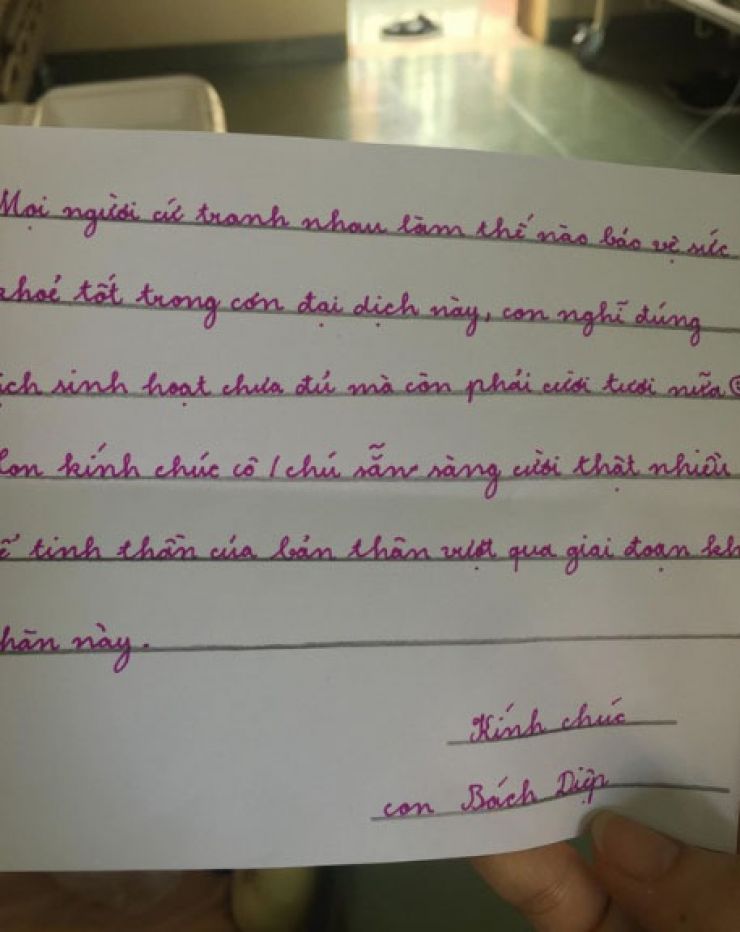 Mọi người cứ tranh nhau làm thế nào bảo vệ sức
khoẻ tốt trong cơn đại dịch này, con nghĩ đúng
ịch sinh hoạt chưa đủ mà còn phải cười tươi nữa
Con kính chúc cô / chú sẵn sàng cười thật nhiều
ể tinh thần của bản thân vượt qua giai đoạn kh
hăn này.
Kính chúc
con Bách Diệp